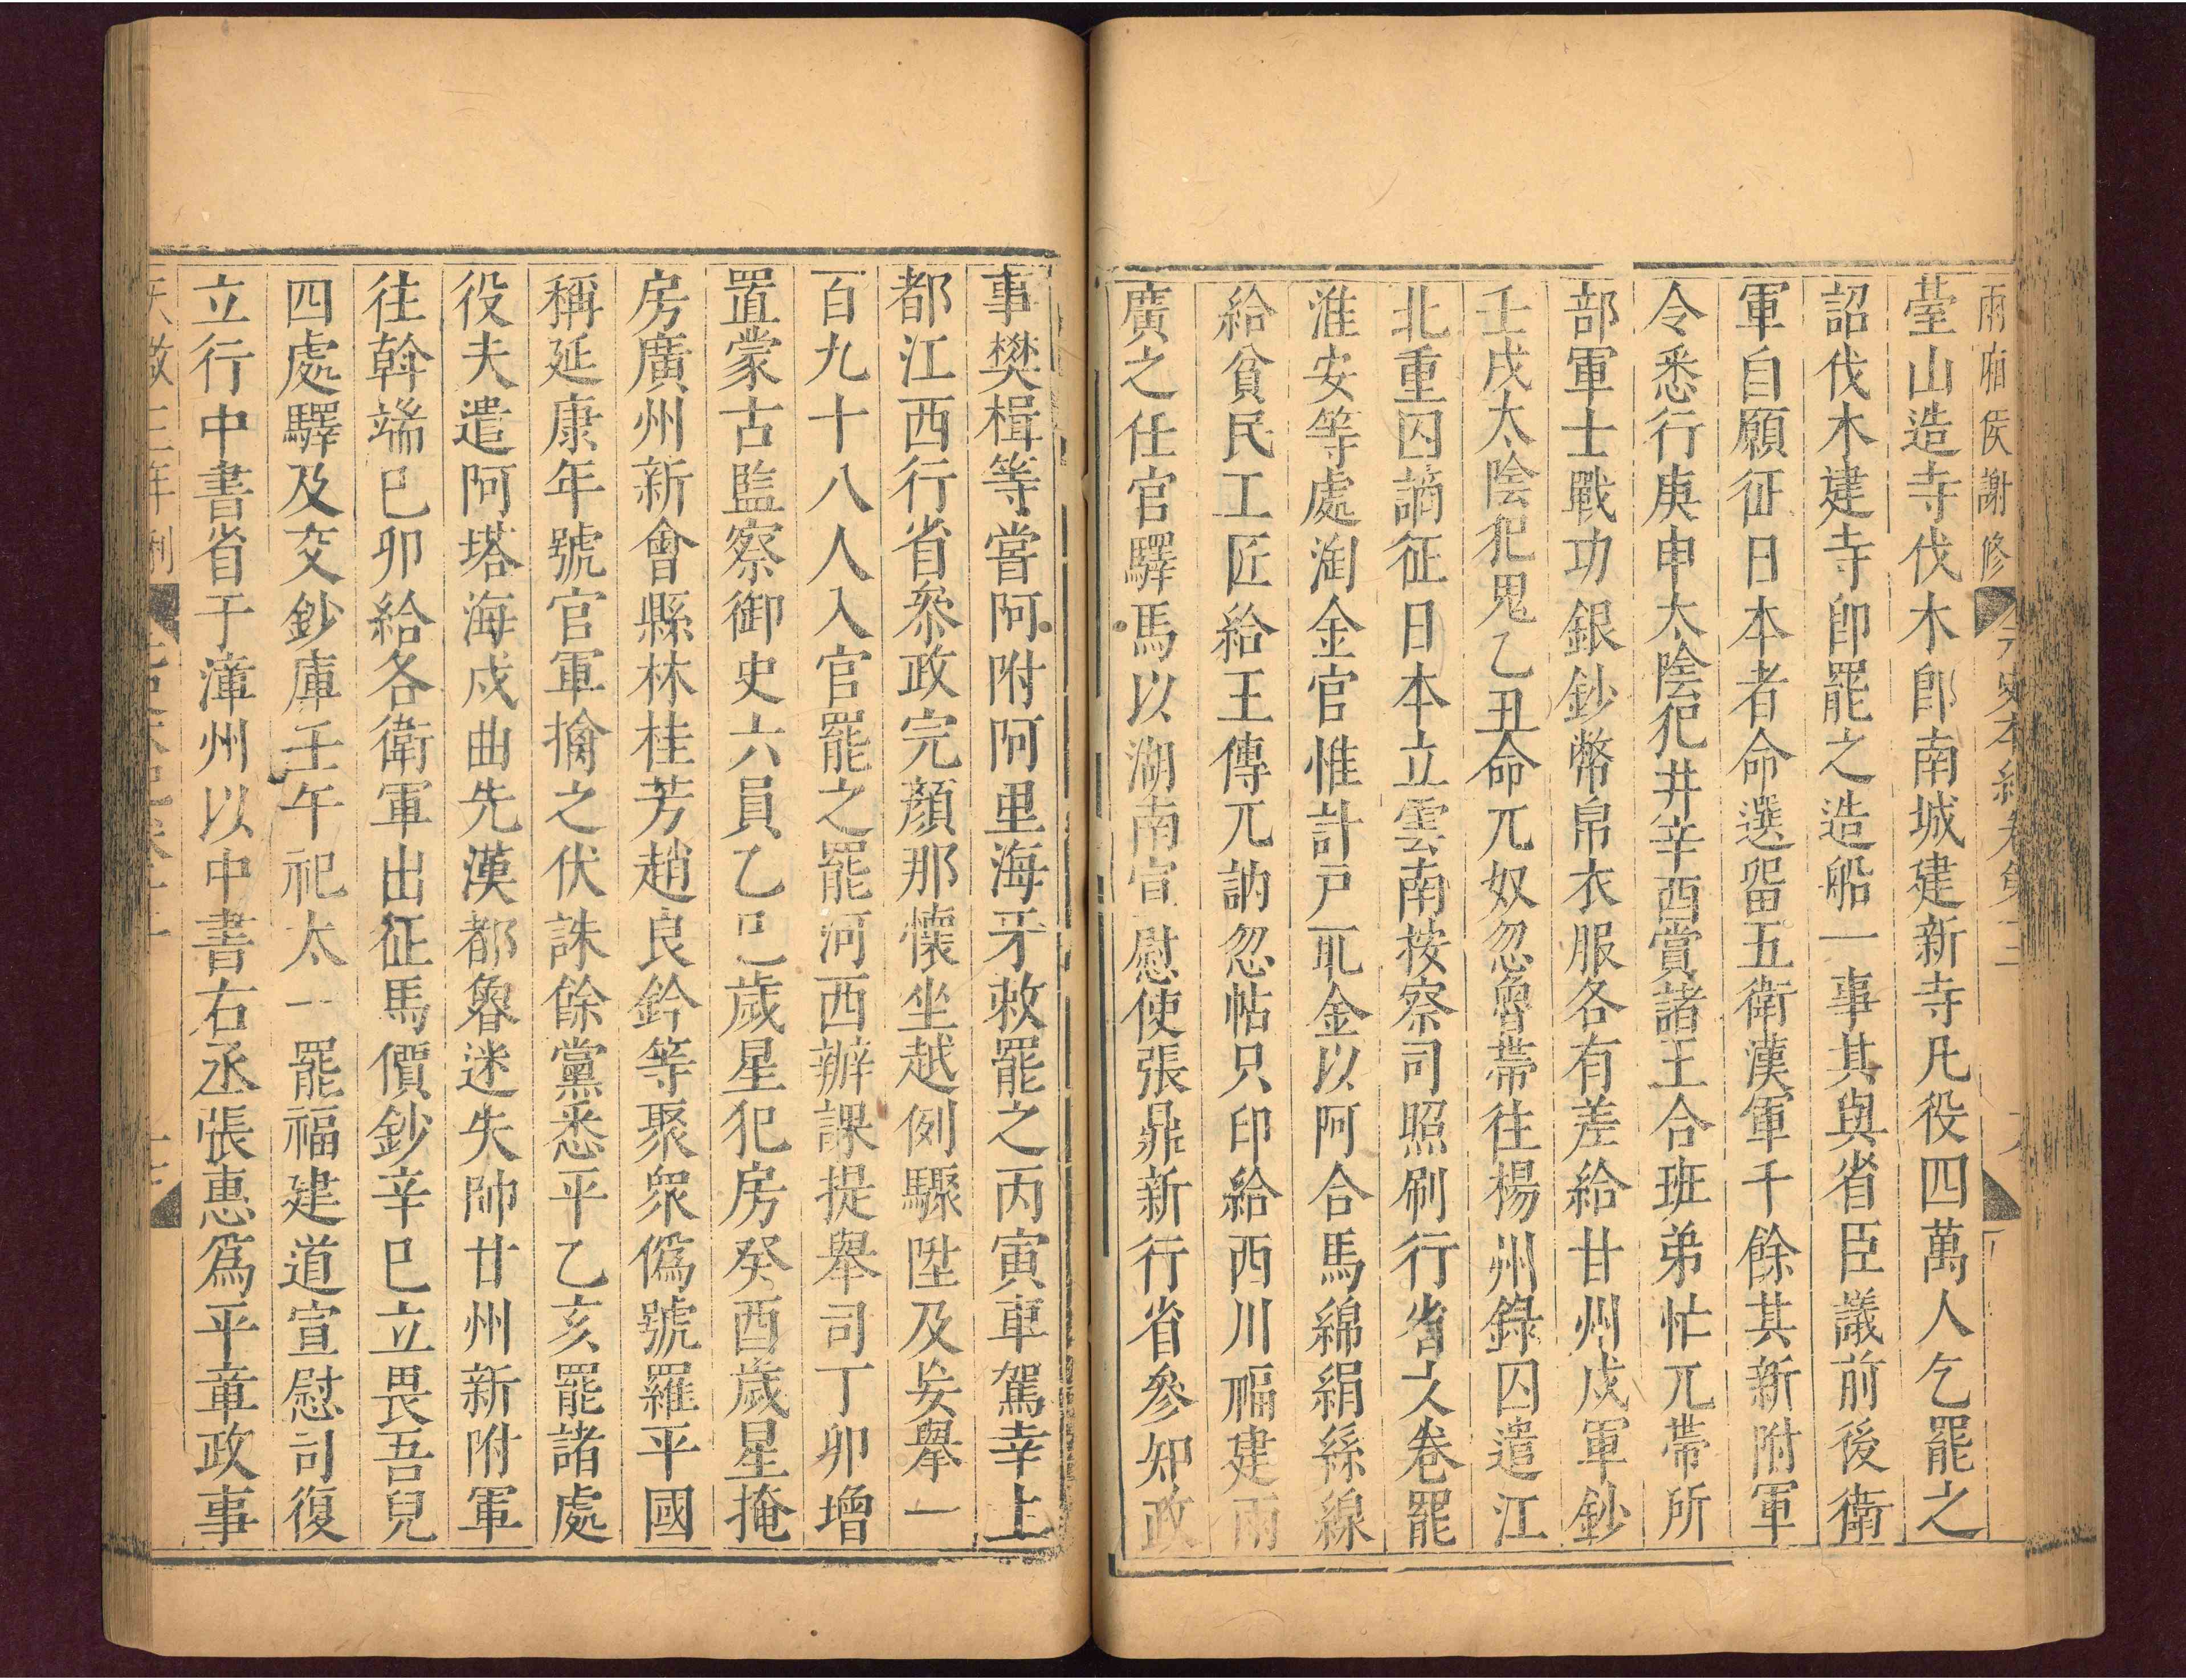 兩廂侯謝修
元史本紀卷第十二
臺山造寺伐木卽南城建新寺凡役四萬人乞罷之
詔伐木建寺卽罷之造船一事其與省臣議前後衛
軍自願征日本者命選留五衛漢軍千餘其新附軍
令悉行庚申太陰犯井辛酉賞諸王合班弟忙兀帶所
部軍士戰功銀鈔幣帛衣服各有差給甘州戍軍鈔
壬戌太陰犯鬼乙丑命兀奴忽魯帶往楊州錄囚遣江
北重囚謫征日本立雲南按察司照刷行省文卷罷
淮安等處淘金官惟計戸取金以阿合馬綿絹絲線
給貧民工匠給王傳兀訥忽帖只印給西川福建兩
廣之任官驛馬以湖南宣慰使張鼎新行省參知政
事樊楫等嘗阿附阿里海牙敕罷之丙寅車駕幸上
都江西行省叅政完顔那懷坐越例驟陞及妄舉一
百九十八人入官罷之罷河西辦課提舉司丁卯增
置蒙古監察御史六員乙巳歲星犯房癸酉歲星掩
房廣州新會縣林桂芳趙良鈐等聚衆僞號羅平國
稱延康年號官軍擒之伏誅餘黨悉平乙亥罷諸處
役夫遣阿塔海戍曲先漢都魯迷失帥甘州新附軍
往斡端己卯給各衛軍出征馬價鈔辛巳立畏吾兒
四處驛及交鈔庫壬午祀太一罷福建道宣慰司復
立行中書省于漳州以中書右丞張惠爲平章政事